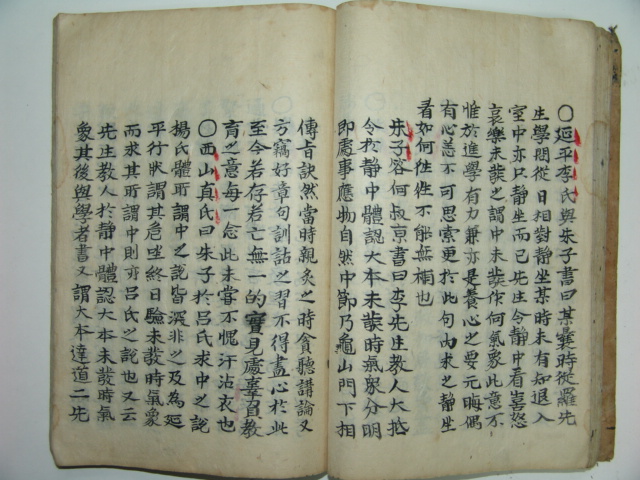 〇延平李氏與朱子書曰某曩時從羅先
生學問從日相對靜坐某時未有知退入
室中亦只靜坐而已先生令靜中看喜怒
哀樂未發之謂中未發作何氣象此意不
惟於進學有力兼亦是養心之要元晦偶
有心恙不可思索更於此句內求之靜坐
看如何往往不能無補也
朱子答何叔京書曰李先生教人大抵
令於靜中體認大本未發時氣象分明
即處事應物自然中節乃龜山門下相
傳旨訣然當時親炙之時貪聽講論又
方竊好章句訓詁之習不得盡心於此
至今若存若亡無一的實見處辜負教
育之意每一念此未嘗不愧汗沾衣也
〇西山真氏曰朱子於呂氏求中之說
楊氏體所謂中之說皆深非之及為延
平行狀謂其危坐終日驗未發時氣象
而求其所謂中則亦呂氏之說也又云
先生教人於靜中體認大本未發時氣
象其後與學者書又謂大本達道二先